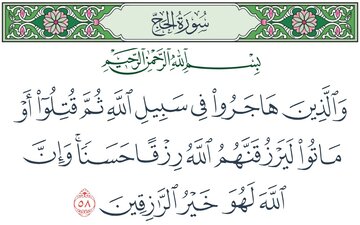 سُورَةُ الحَجّ
بِسْمِ ٱللَّهِ ٱلرَّحْمَٰنِ ٱلرَّحِيمِ
وَٱلَّذِينَ هَاجَرُوا۟ فِى سَبِيلِ ٱللَّهِ ثُمَّ قُتِلُوٓا۟ أَوْ
مَاتُوا۟ لَيَرْزُقَنَّهُمُ ٱللَّهُ رِزْقًا حَسَنًا ۚ وَإِنَّ
ٱللَّهَ لَهُوَ خَيْرُ ٱلرَّٰزِقِينَ ٥٨